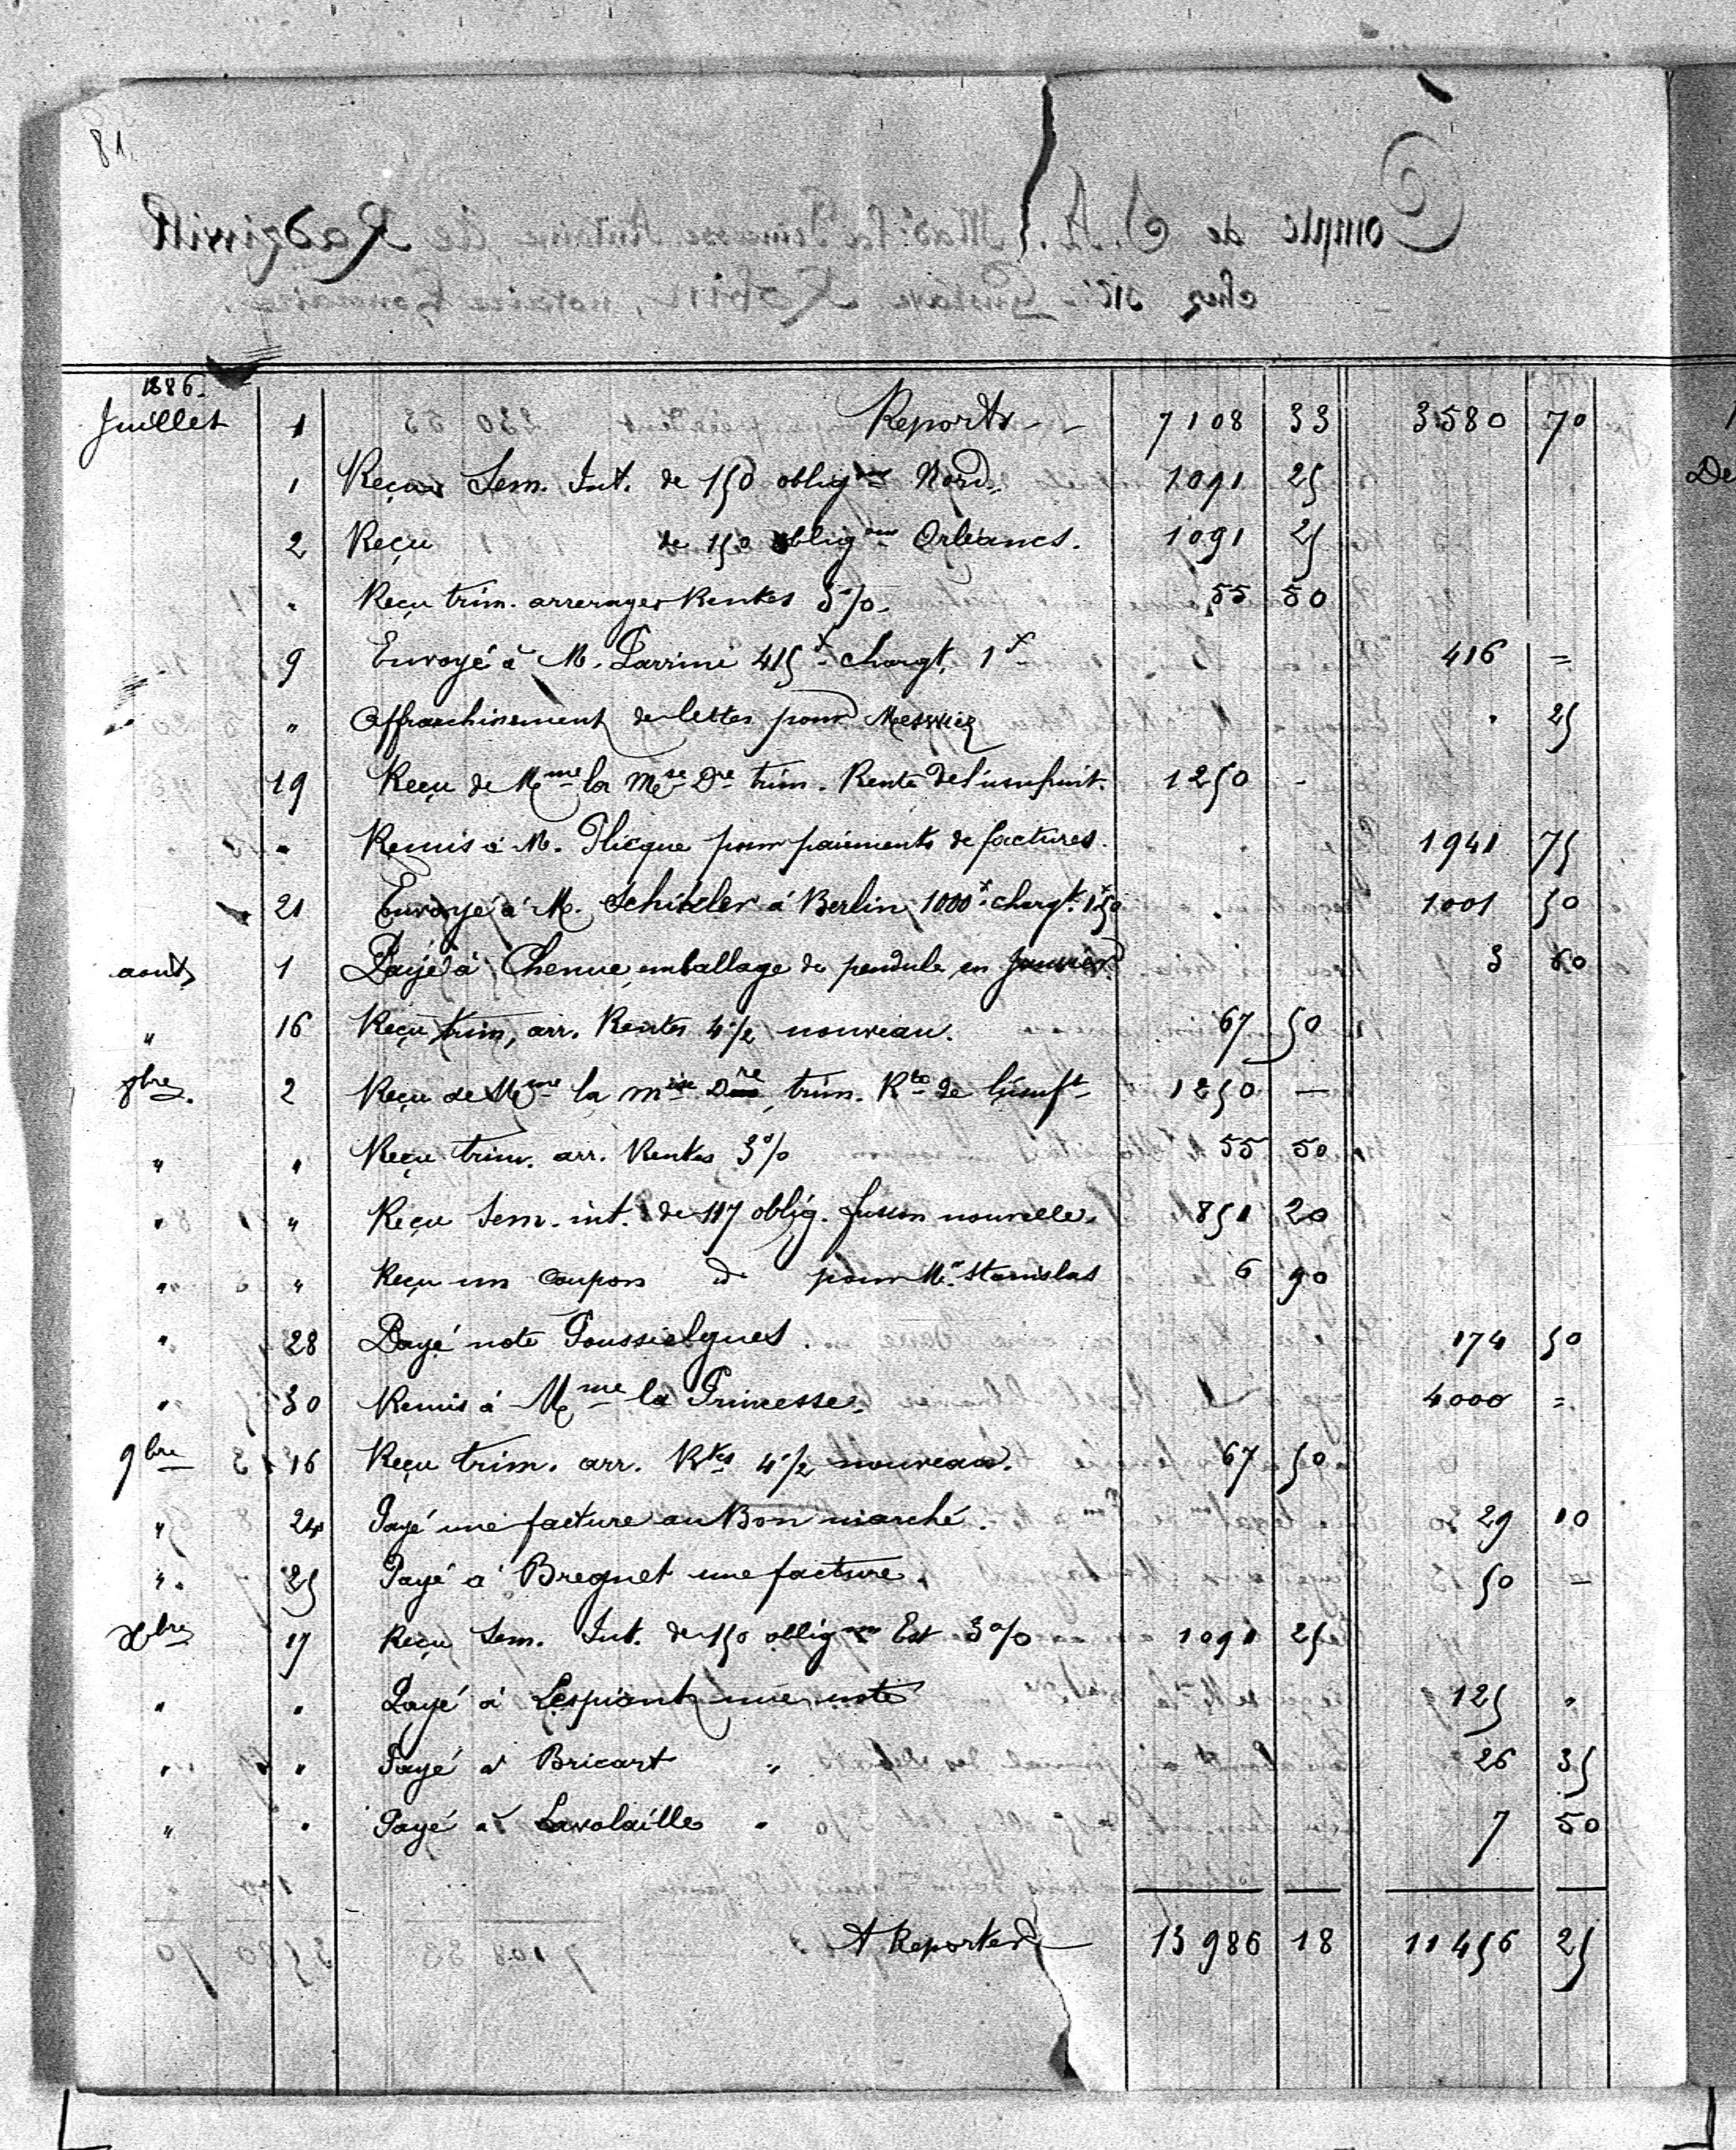 81.
1886.
Juillet 1 Reports 7108 33 3580 70
1 Reçu Sem. Int. de 150 oblig^ons Nord. 1091 25
2 Reçu de 150 oblig^ons Orléans. 1091 25
" Reçu trim. arrerages Rentes 3%. 55 50
9 Envoyé à M. Larrine 415 f chargt. 1 f 416 =
" Affranchissement de lettes pour 25
19 Reçu de M^me la M^se D^re trim. Rente de l'usufruit. 1250 -
" Remis à M. Plicque pour paiements de factures. 1941 75
21 Envoyé à M. Schikler à Berlin 1000 f chargt. 1 f 50 1001 50
aout 1 Payé à Chenue, emballage de pendule en Janvier. 3 60
" 16 Reçu trim, arr. Rentes 4 1/2 nouveau. 67 50
8bre. 2 Reçu de M^me la M^ise D^re, trim. R^te de l'usuf^t 1250 —
" " Reçu trim. arr. Rentes 3% 55 50
" " Reçu Sem. int. de 117 oblig. fusion nouvelle. 851 20
" " Reçu un Coupon d° pour M^r Stanislas 6 90
" 28 Payé note Poussielgues. 174 50
" 30 Remis à M^me la Princesse. 4000 =
9bre 16 Reçu trim. arr. R^tes 4 1/2 nouveau. 67 50
" 24 Payé une facture au Bon marché. 29 10
" 25 Payé à Breguet une facture. 50 —
Xbre 17 Reçu Sem. Int. de 150 oblig^ons Est 3% 1091 25
" " Payé à Lespiant une note 125 "
" " Payé à Bricart " 26 35
" " Payé à Lavolaille " 7 50
A Reporter 13986 18 11456 25